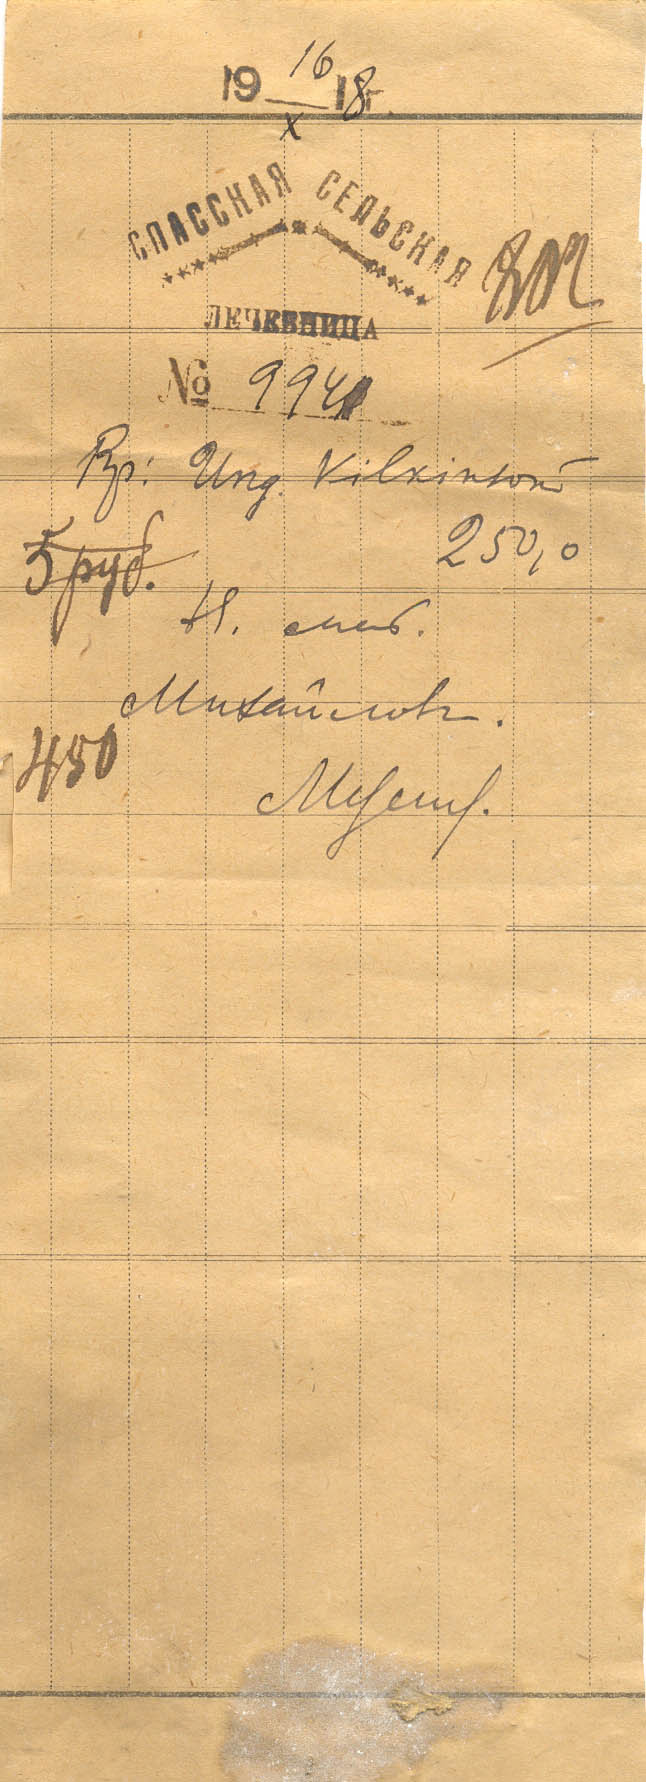 19 16/X 18 г.
СПАССКАЯ СЕЛЬСКАЯ
ЛЕЧЕБНИЦА
№ 994
Rp: Ung. Vilkinsoni
250,0
5 руб.
Н.
Михайловъ.
450